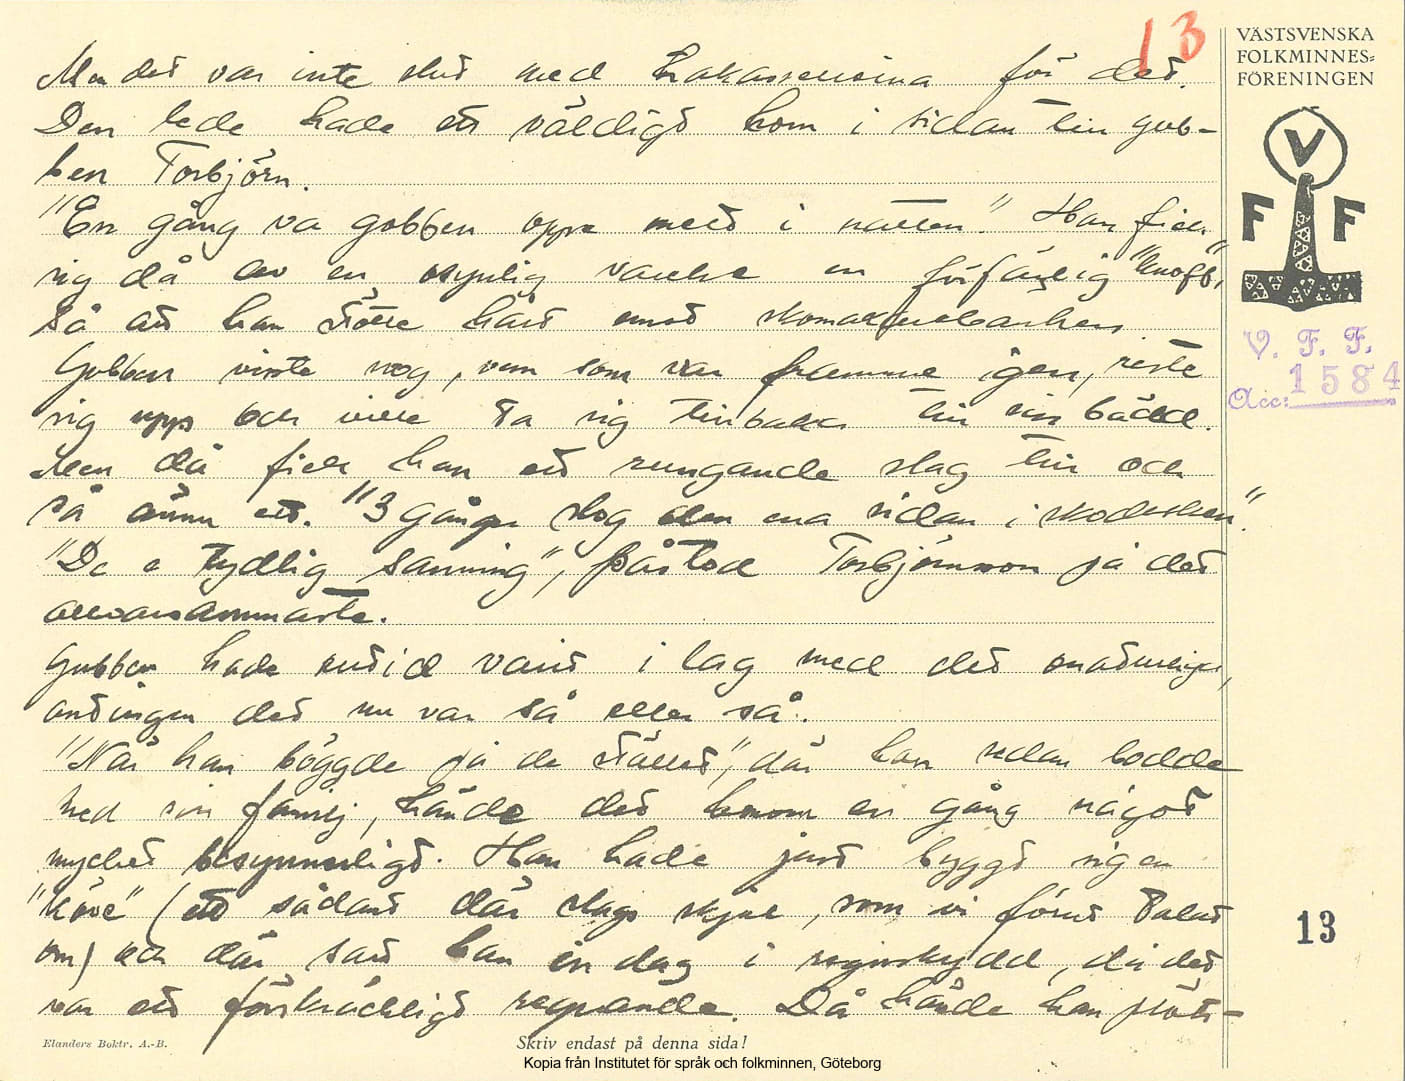 13
VÄSTSVENSKA
FOLKMINNES-
FÖRENINGEN
V
F F
V. F. F.
Acc: 1584
Men det var inte slut med trakasserierna för det.
Den lede hade ett väldigt horn i sidan till gub-
ben Torbjörn.
"En gång va gobben oppe mett i natten." Han fick
sig då av en osynlig varelse en förfärlig "knoff",
så att han stötte hårt emot skomakarebänken
Gubben visste nog, vem som var framme igen, reste
sig upp och ville ta sig tillbaka till sin bädd.
Men då fick han ett rungande slag till och
så ännu ett. "3 gånger slog den ena sidan i skodisken".
"De e tydlig sanning", påstod Torbjörnsson på det
allvarsammaste.
Gubben hade alltid varit i lag med det onaturliga,
antingen det nu var så eller så.
"När han böggde på de stället", där han sedan bodde
med sin familj, hände det honom en gång något
mycket besynnerligt. Han hade just byggt sig en
"käve" (ett sådant där slags skjul, som vi förut talat
om) och där satt han en dag i regnskydd, då det
var ett förskräckligt regnande. Då hände han plöts-
13
Elanders Boktr. A.-B.
Skriv endast på denna sida!
Kopia från Institutet för språk och folkminnen, Göteborg